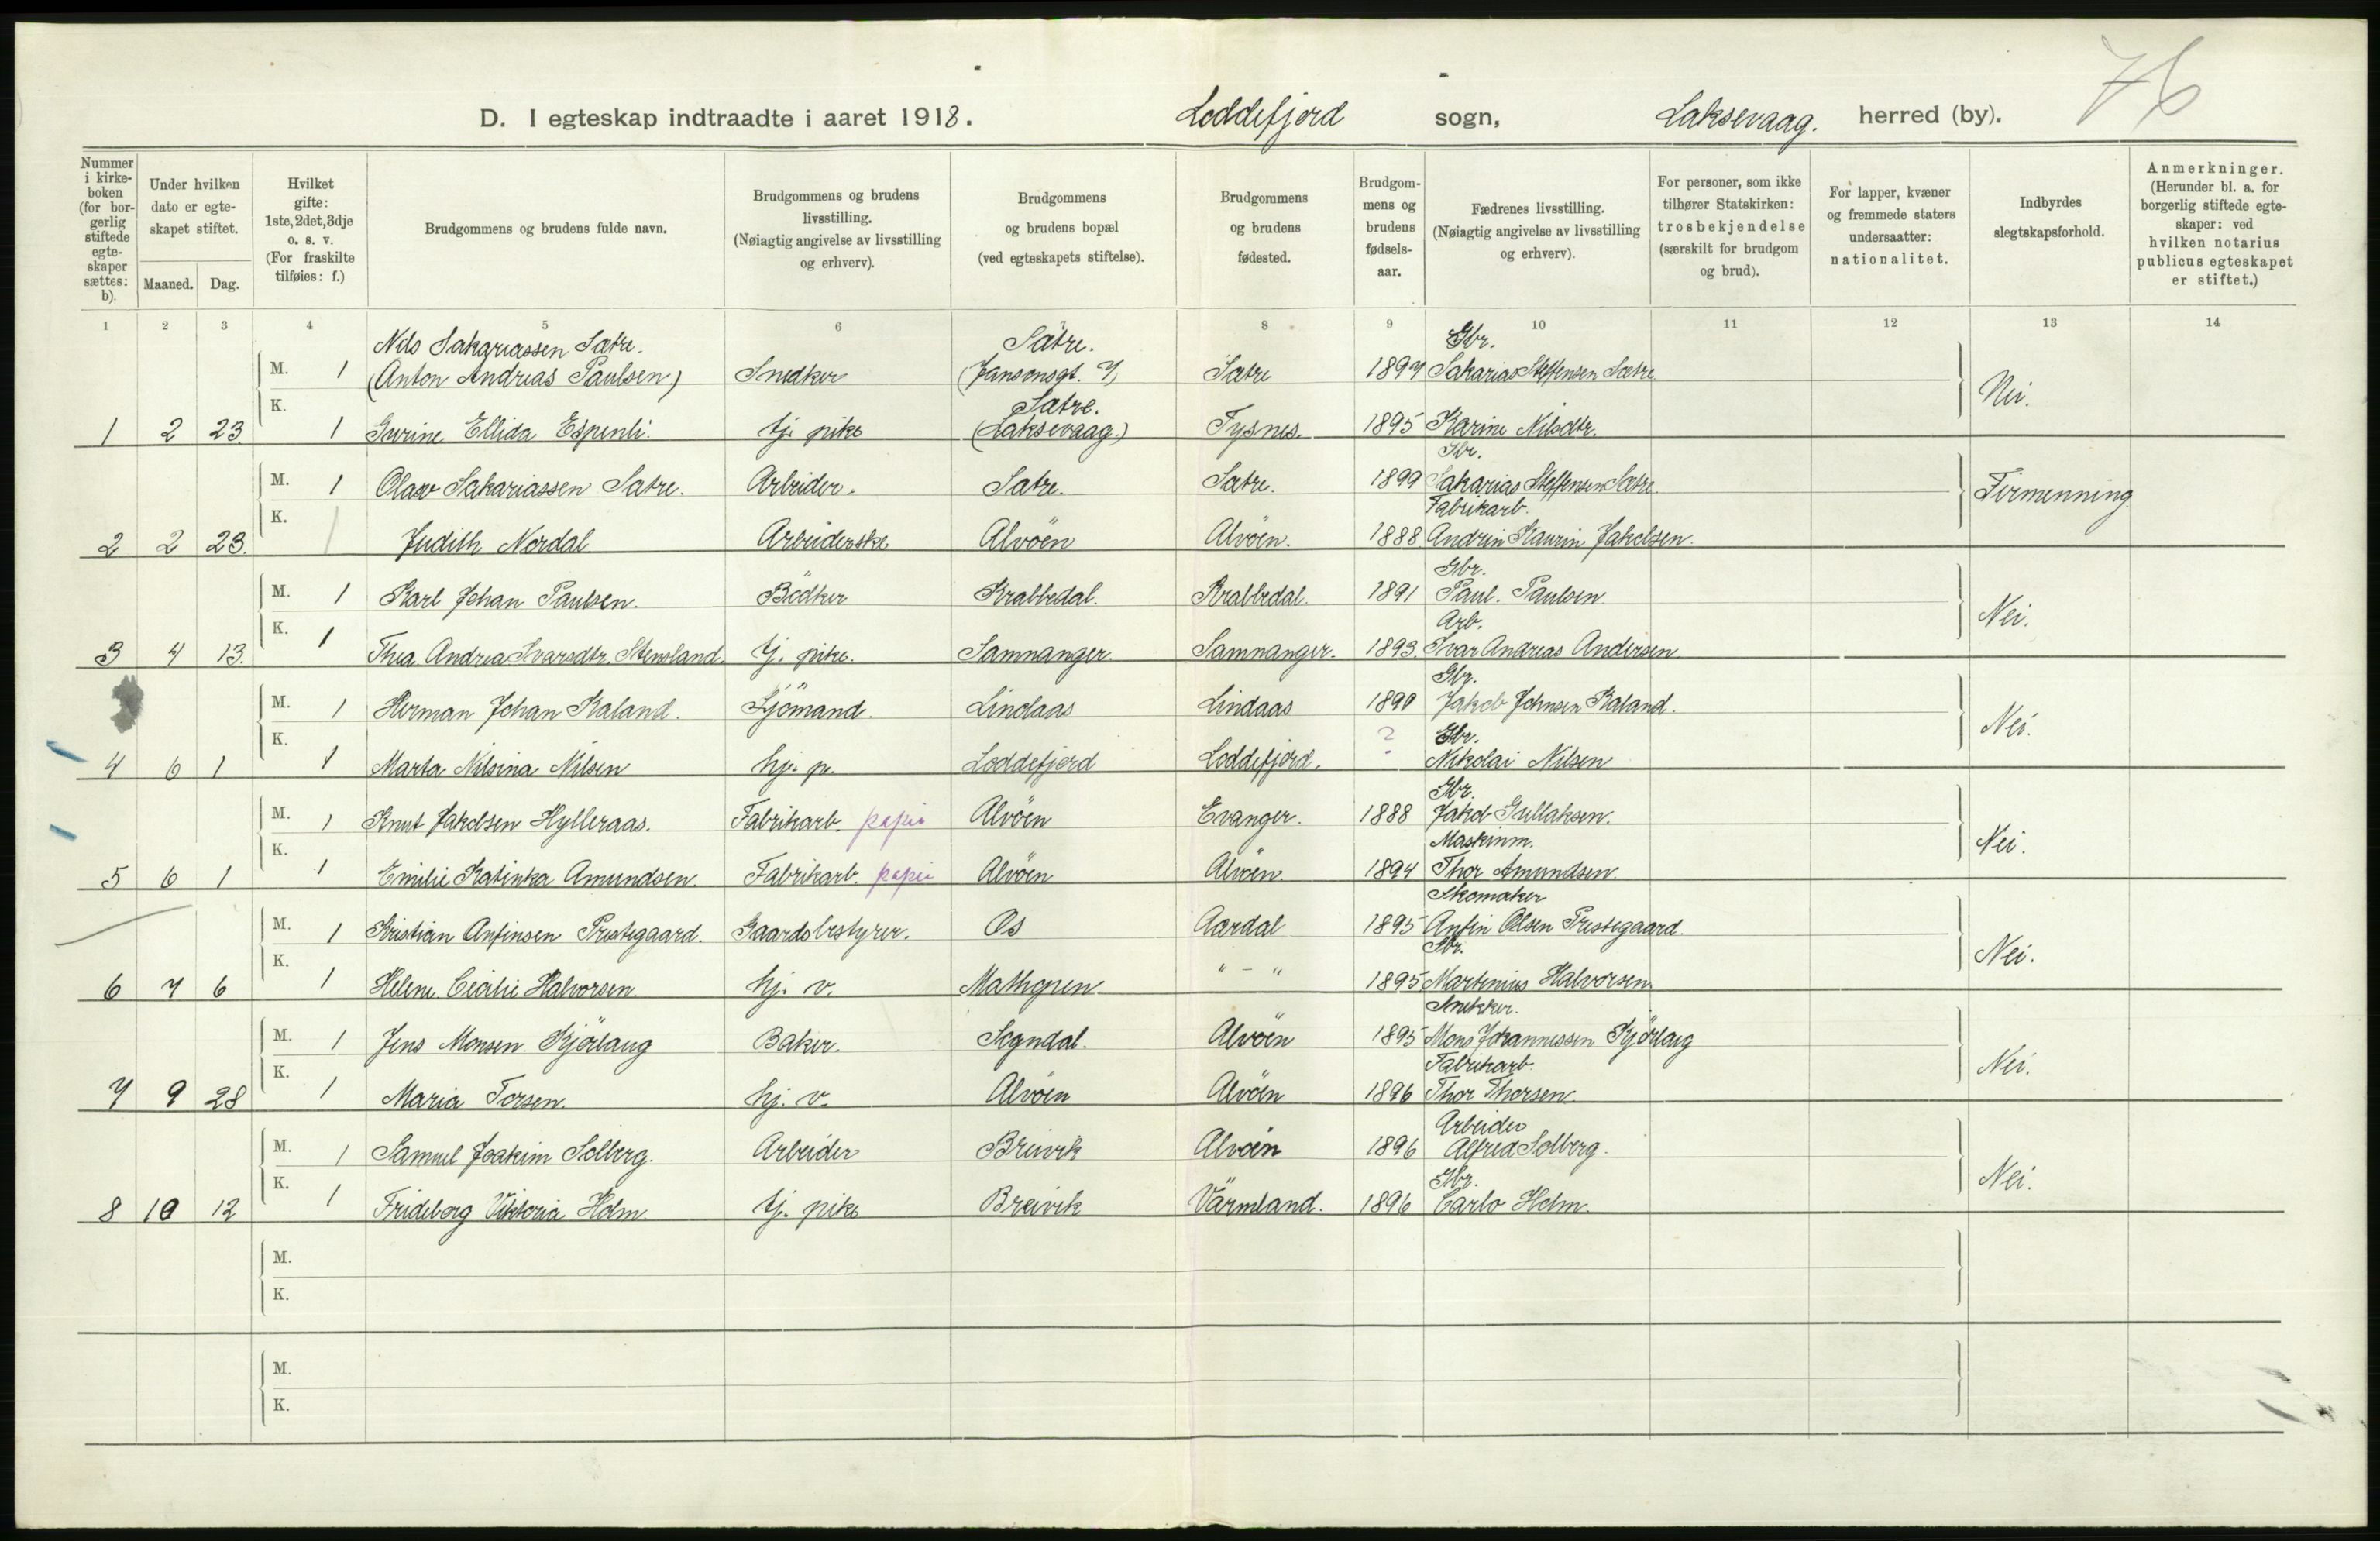 76
D. I egteskap indtraadte i aaret 1918. Loddefjord sogn, Laksevaag. herred (by).
Nummer i kirkeboken (for borgerlig stiftede egteskaper sættes: b).
Under hvilken dato er egteskapet stiftet.
Maaned. Dag.
Hvilket gifte: 1ste, 2det, 3dje o. s. v. (For fraskilte tilføies: f.)
Brudgommens og brudens fulde navn.
Brudgommens og brudens livsstilling. (Nøiagtig angivelse av livsstilling og erhverv).
Brudgommens og brudens bopæl (ved egteskapets stiftelse).
Brudgommens og brudens fødested.
Brudgommens og brudens fødselsaar.
Fædrenes livsstilling. (Nøiagtig angivelse av livsstilling og erhverv).
For personer, som ikke tilhører Statskirken: trosbekjendelse (særskilt for brudgom og brud).
For lapper, kvæner og fremmede staters undersaatter: nationalitet.
Indbyrdes slegtskapsforhold.
Anmerkninger. (Herunder bl. a. for borgerlig stiftede egteskaper: ved hvilken notarius publicus egteskapet er stiftet.)
1 2 3 4 5 6 7 8 9 10 11 12 13 14
Nils Sakariassen Sætre. Sätre. Gbr.
M. 1 (Anton Andreas Paulsen) Snedker (Jansonsgt. 7) Sætre 1897 Sakarias Steffensen Sætre Nei.
K. Satre.
1 2 23. 1 Gurine Ellida Espenli. tj. pike (Laksevaag.) Tysnes. 1895 Karine Nilsdtr.
Gbr.
M. 1 Olav Sakariassen Satre. Arbeider. Satre. Satre. 1899 Sakarias Steffensen Satre. Firmenning
K. Fabrikarb.
2 2 23. 1 Judith Nordal Arbeiderske Alvöen Alvöen. 1888 Andrin Jakobsen.
Gbr.
M. 1 Karl Johan Paulsen. Bödker Krabbedal. Krabbedal. 1891 Paul. Paulsen. Nei.
K. Arb.
3 4 13. 1 Thea Andrea Ivarsdtr. Stensland. tj. pike. Samnanger. Samnanger. 1893. Ivar Andreas Andersen
Gbr.
M. 1 Herman Johan Kaland. Sjömand. Lindaas Lindaas 1890 Jakob Johnsen Kaland. Nei.
K. Gbr.
4 6 1 1 Marta Nilsina Nilsen hj. p. Loddefjord Loddefjord. ? Nikolai Nilsen
Gbr.
M. 1 Knut Jakobsen Hylleraas. Fabrikarb. papir Alvöen Evanger. 1888 Jakob Gullaksen. Nei.
K. Maskinm.
5 6 1 1 Emilie Katinka Amundsen. Fabrikarb. papir Alvöen Alvöen. 1894 Thor Amundsen.
Skomaker
M. 1 Kristian Anfinsen Prestegaard. Gaardsbestyrer. Os Aardal 1895 Anfin Olsen Prestegaard. Nei.
K. Gbr.
6 7 6 1 Helene Cecilie Halvorsen. hj. v. Mathopen " - " 1895 Martinius Halvorsen.
Snekker.
M. 1 Jens Monsen Kjörlaug Baker. Sogndal. Alvöen 1895 Mons Johannessen Kjörlaug Nei.
K. Fabrikarb.
7 9 28 1 Maria Torsen. hj. v. Alvöen Alvöen 1896 Thor Thorsen.
Arbeider
M. 1 Samuel Joakim Solberg. Arbeider Breivik Alvöen 1896 Alfred Solberg. Nei.
K. Gbr.
8 10 12 1 Frideborg Viktoria Holm. tj. pike Breivik Värmland. 1896 Carlo Holm.
M.
K.
M.
K.